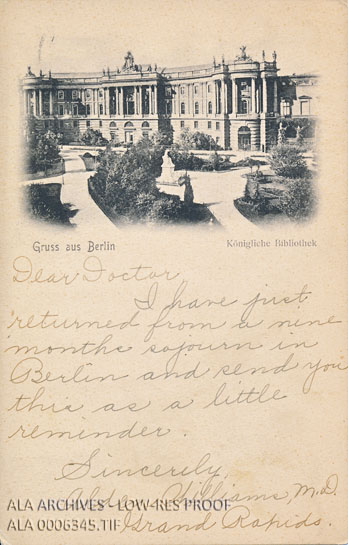 Gruss aus Berlin
Königliche Bibliothek
Dear Doctor,
I have just
returned from a nine
months sojourn in
Berlin and send you
this as a little
reminder.
Sincerely,
Williams, M.D.
Grand Rapids.
ALA ARCHIVES - LOW-RES PROOF
ALA 0006345.TIF